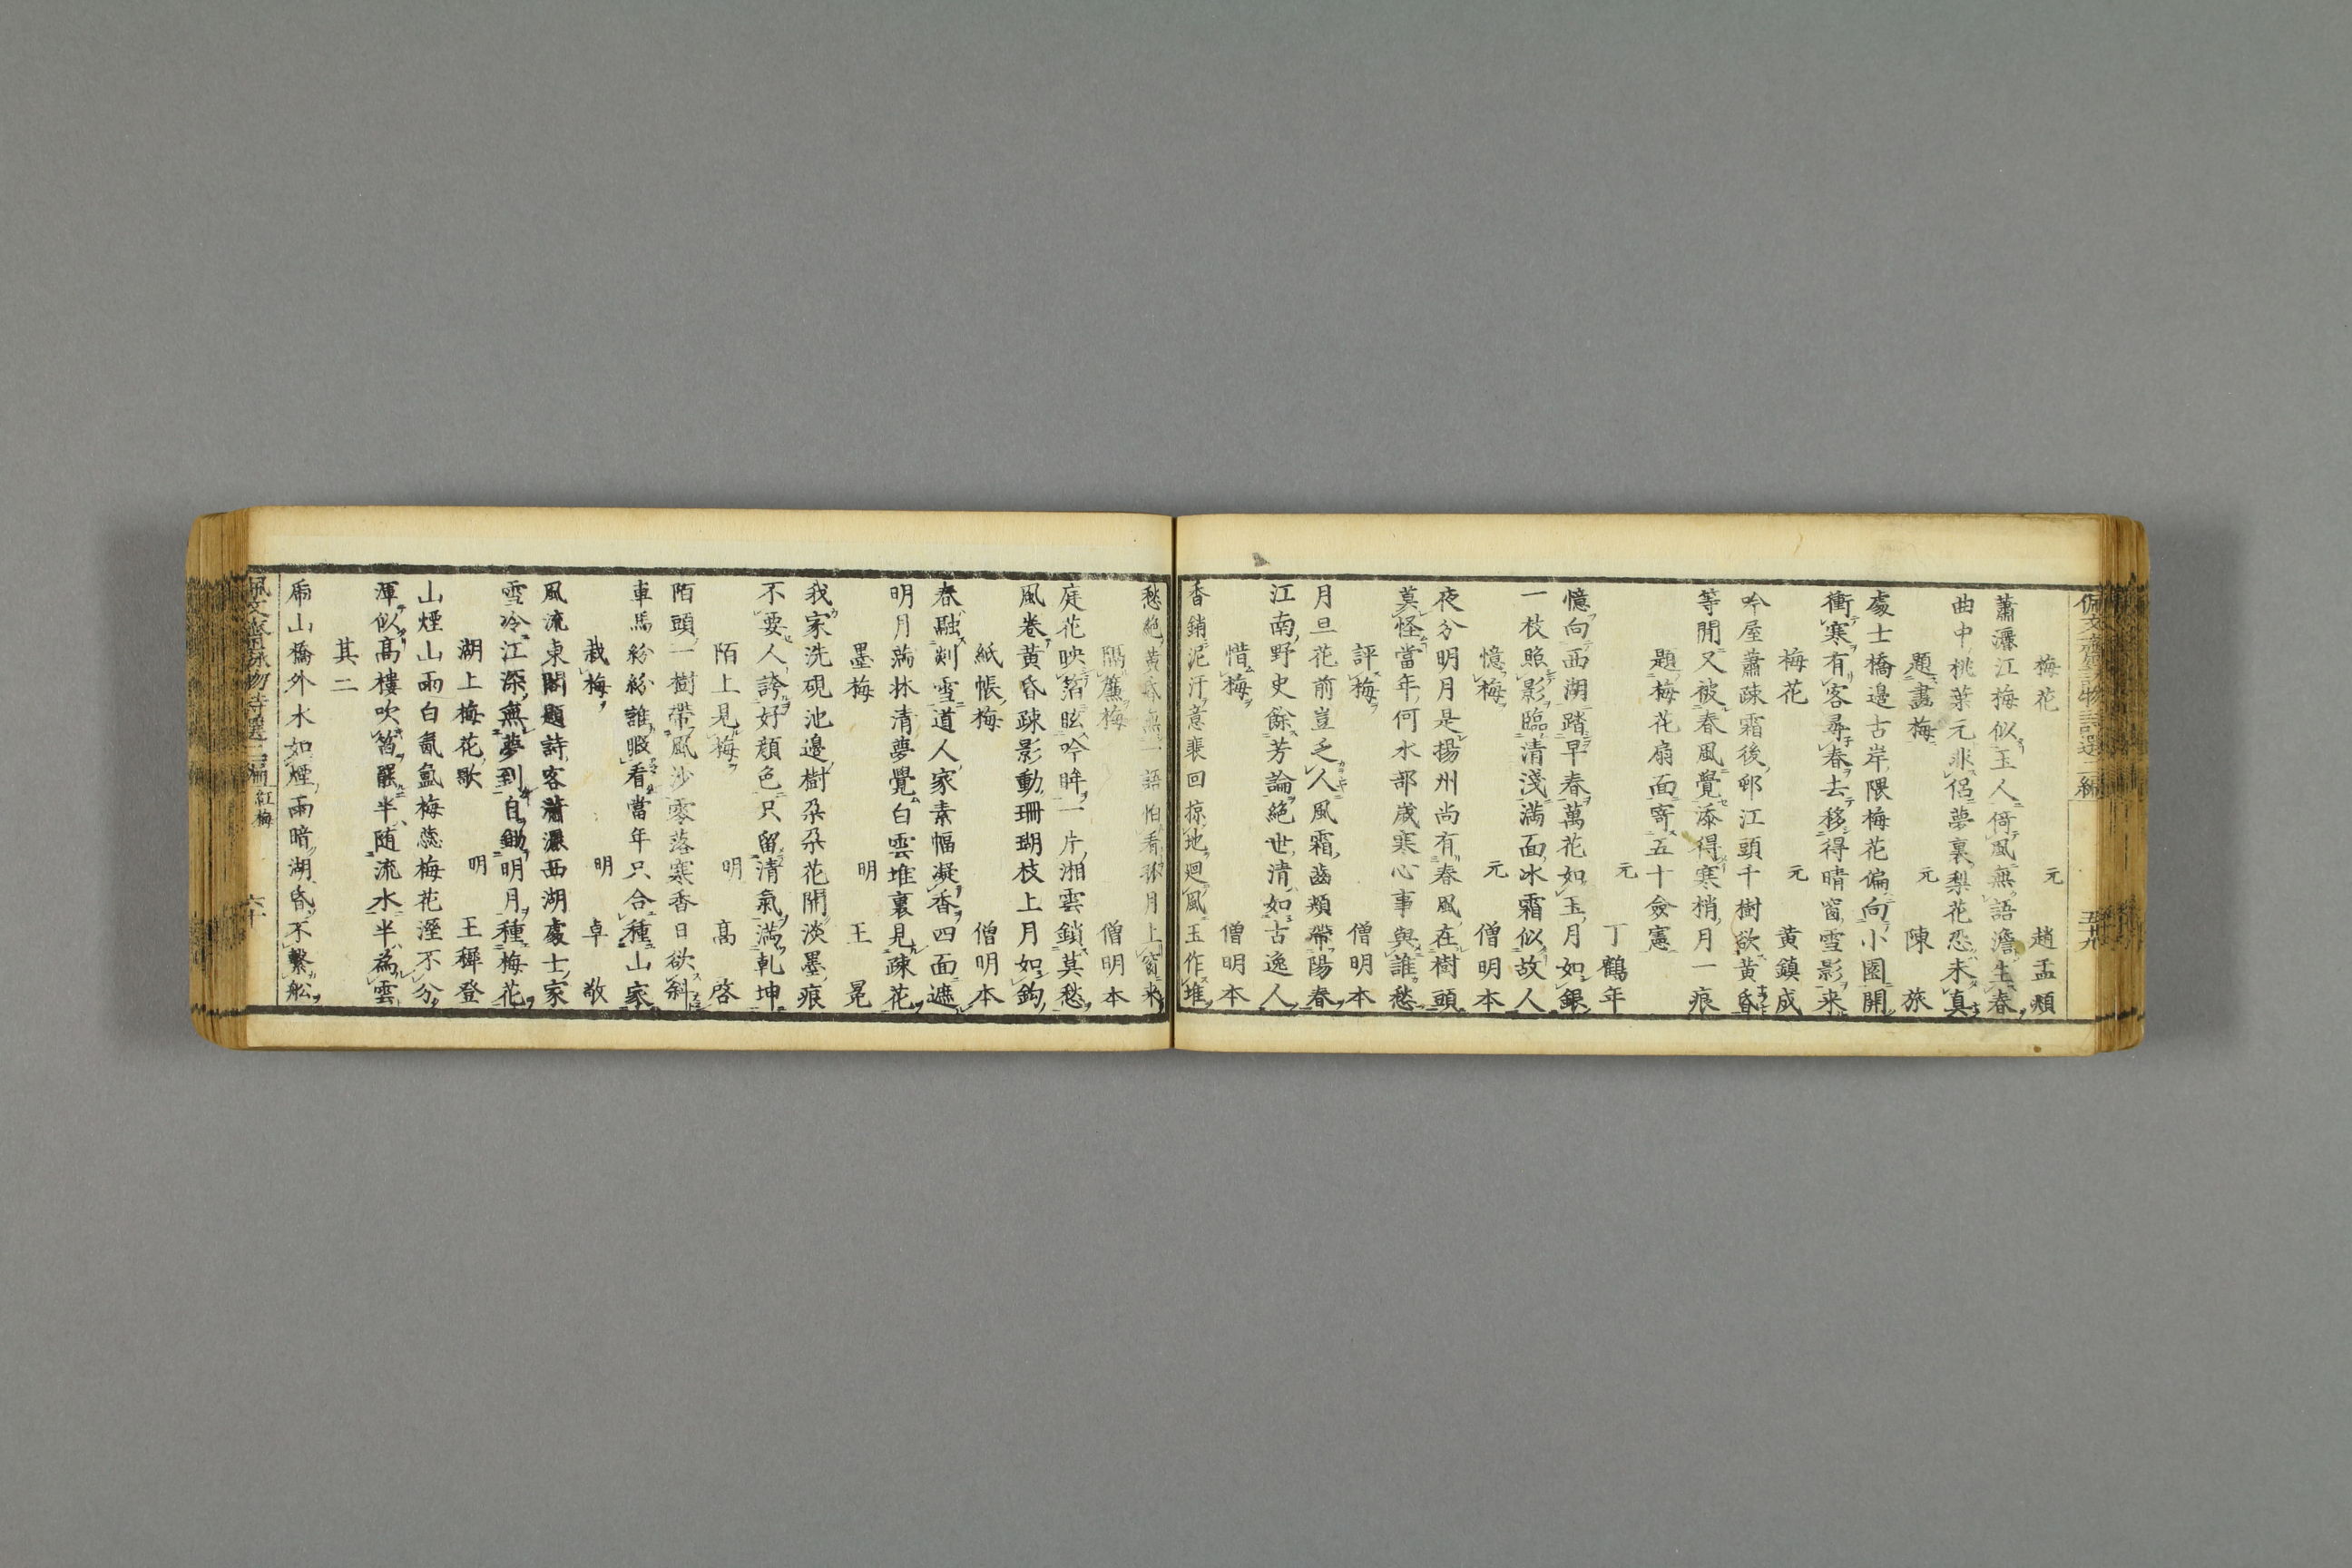 佩文齋詠物詩選二編
五十九
梅花　元　趙孟頫
蕭灑江梅似玉人倚風無語澹生春
曲中桃葉元非侶夢裏梨花恐未真
題畫梅　元　陳旅
處士橋邊古岸隈梅花偏向小園開
衝寒有客尋春去移得晴窗雪影来
梅花　元　黄鎮成
吟屋蕭疎霜後邨江頭千樹欲黄昏
等閒又被春風覺添得寒梢月一痕
題梅花扇面寄五十僉憲
元　丁鶴年
憶向西湖踏早春萬花如玉月如銀
一枝照影臨清淺滿面冰霜似故人
憶梅　元　僧明本
夜分明月是揚州尚有春風在樹頭
莫怪當年何水部歳寒心事與誰愁
評梅　僧明本
月旦花前豈乏人風霜齒頰帶陽春
江南野史餘芳論絶世清如古逸人
惜梅　僧明本
香銷泥汙意裴回掠地廻風玉作堆
愁絶黄昏無一語怕看孤月上窗来
隔簾梅　僧明本
庭花映箔眩吟眸一片湘雲鎖莫愁
風巻黄昏疎影動珊瑚枝上月如鈎
紙帳梅　僧明本
春融剡雪道人家素幅凝香四面遮
明月滿牀清夢覺白雲堆裏見疎花
墨梅　明　王冕
我家洗硯池邊樹朶朶花開淡墨痕
不要人誇好顔色只留清氣滿乾坤
陌上見梅　明　高啓
陌頭一樹帶風沙零落寒香日欲斜
車馬紛紛誰暇看當年只合種山家
栽梅　明　卓敬
風流東閣題詩客瀟灑西湖處士家
雪冷江深無夢到自鋤明月種梅花
湖上梅花歌　明　王穉登
山煙山雨白氤氳梅蕊梅花溼不分
渾似高樓吹笛罷半随流水半為雲
其二
虎山橋外水如煙雨暗湖昏不繫舩
佩文齋詠物詩選二編　紅梅　六十